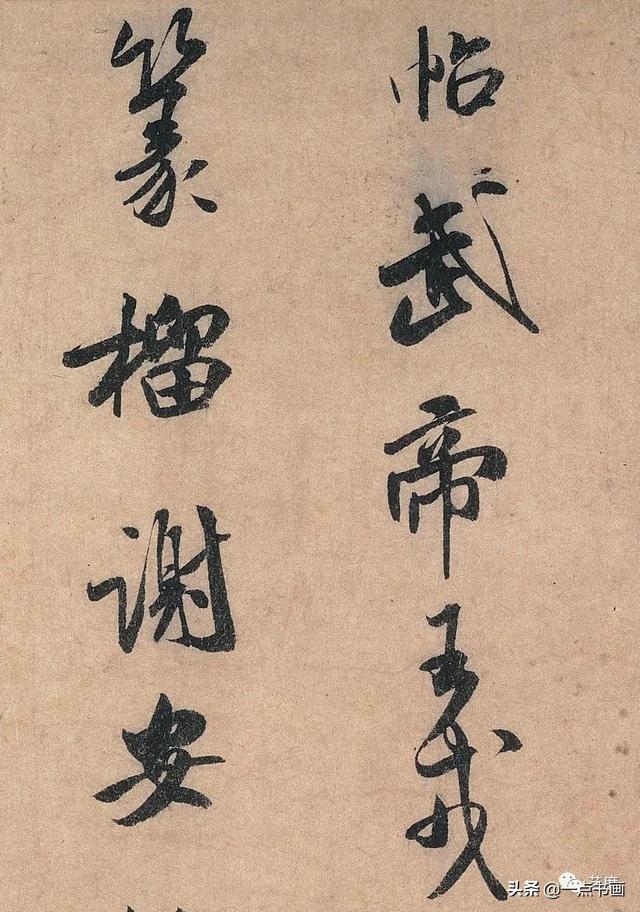 帖武帝王戎
篆榴謝安
头条 @一点书画